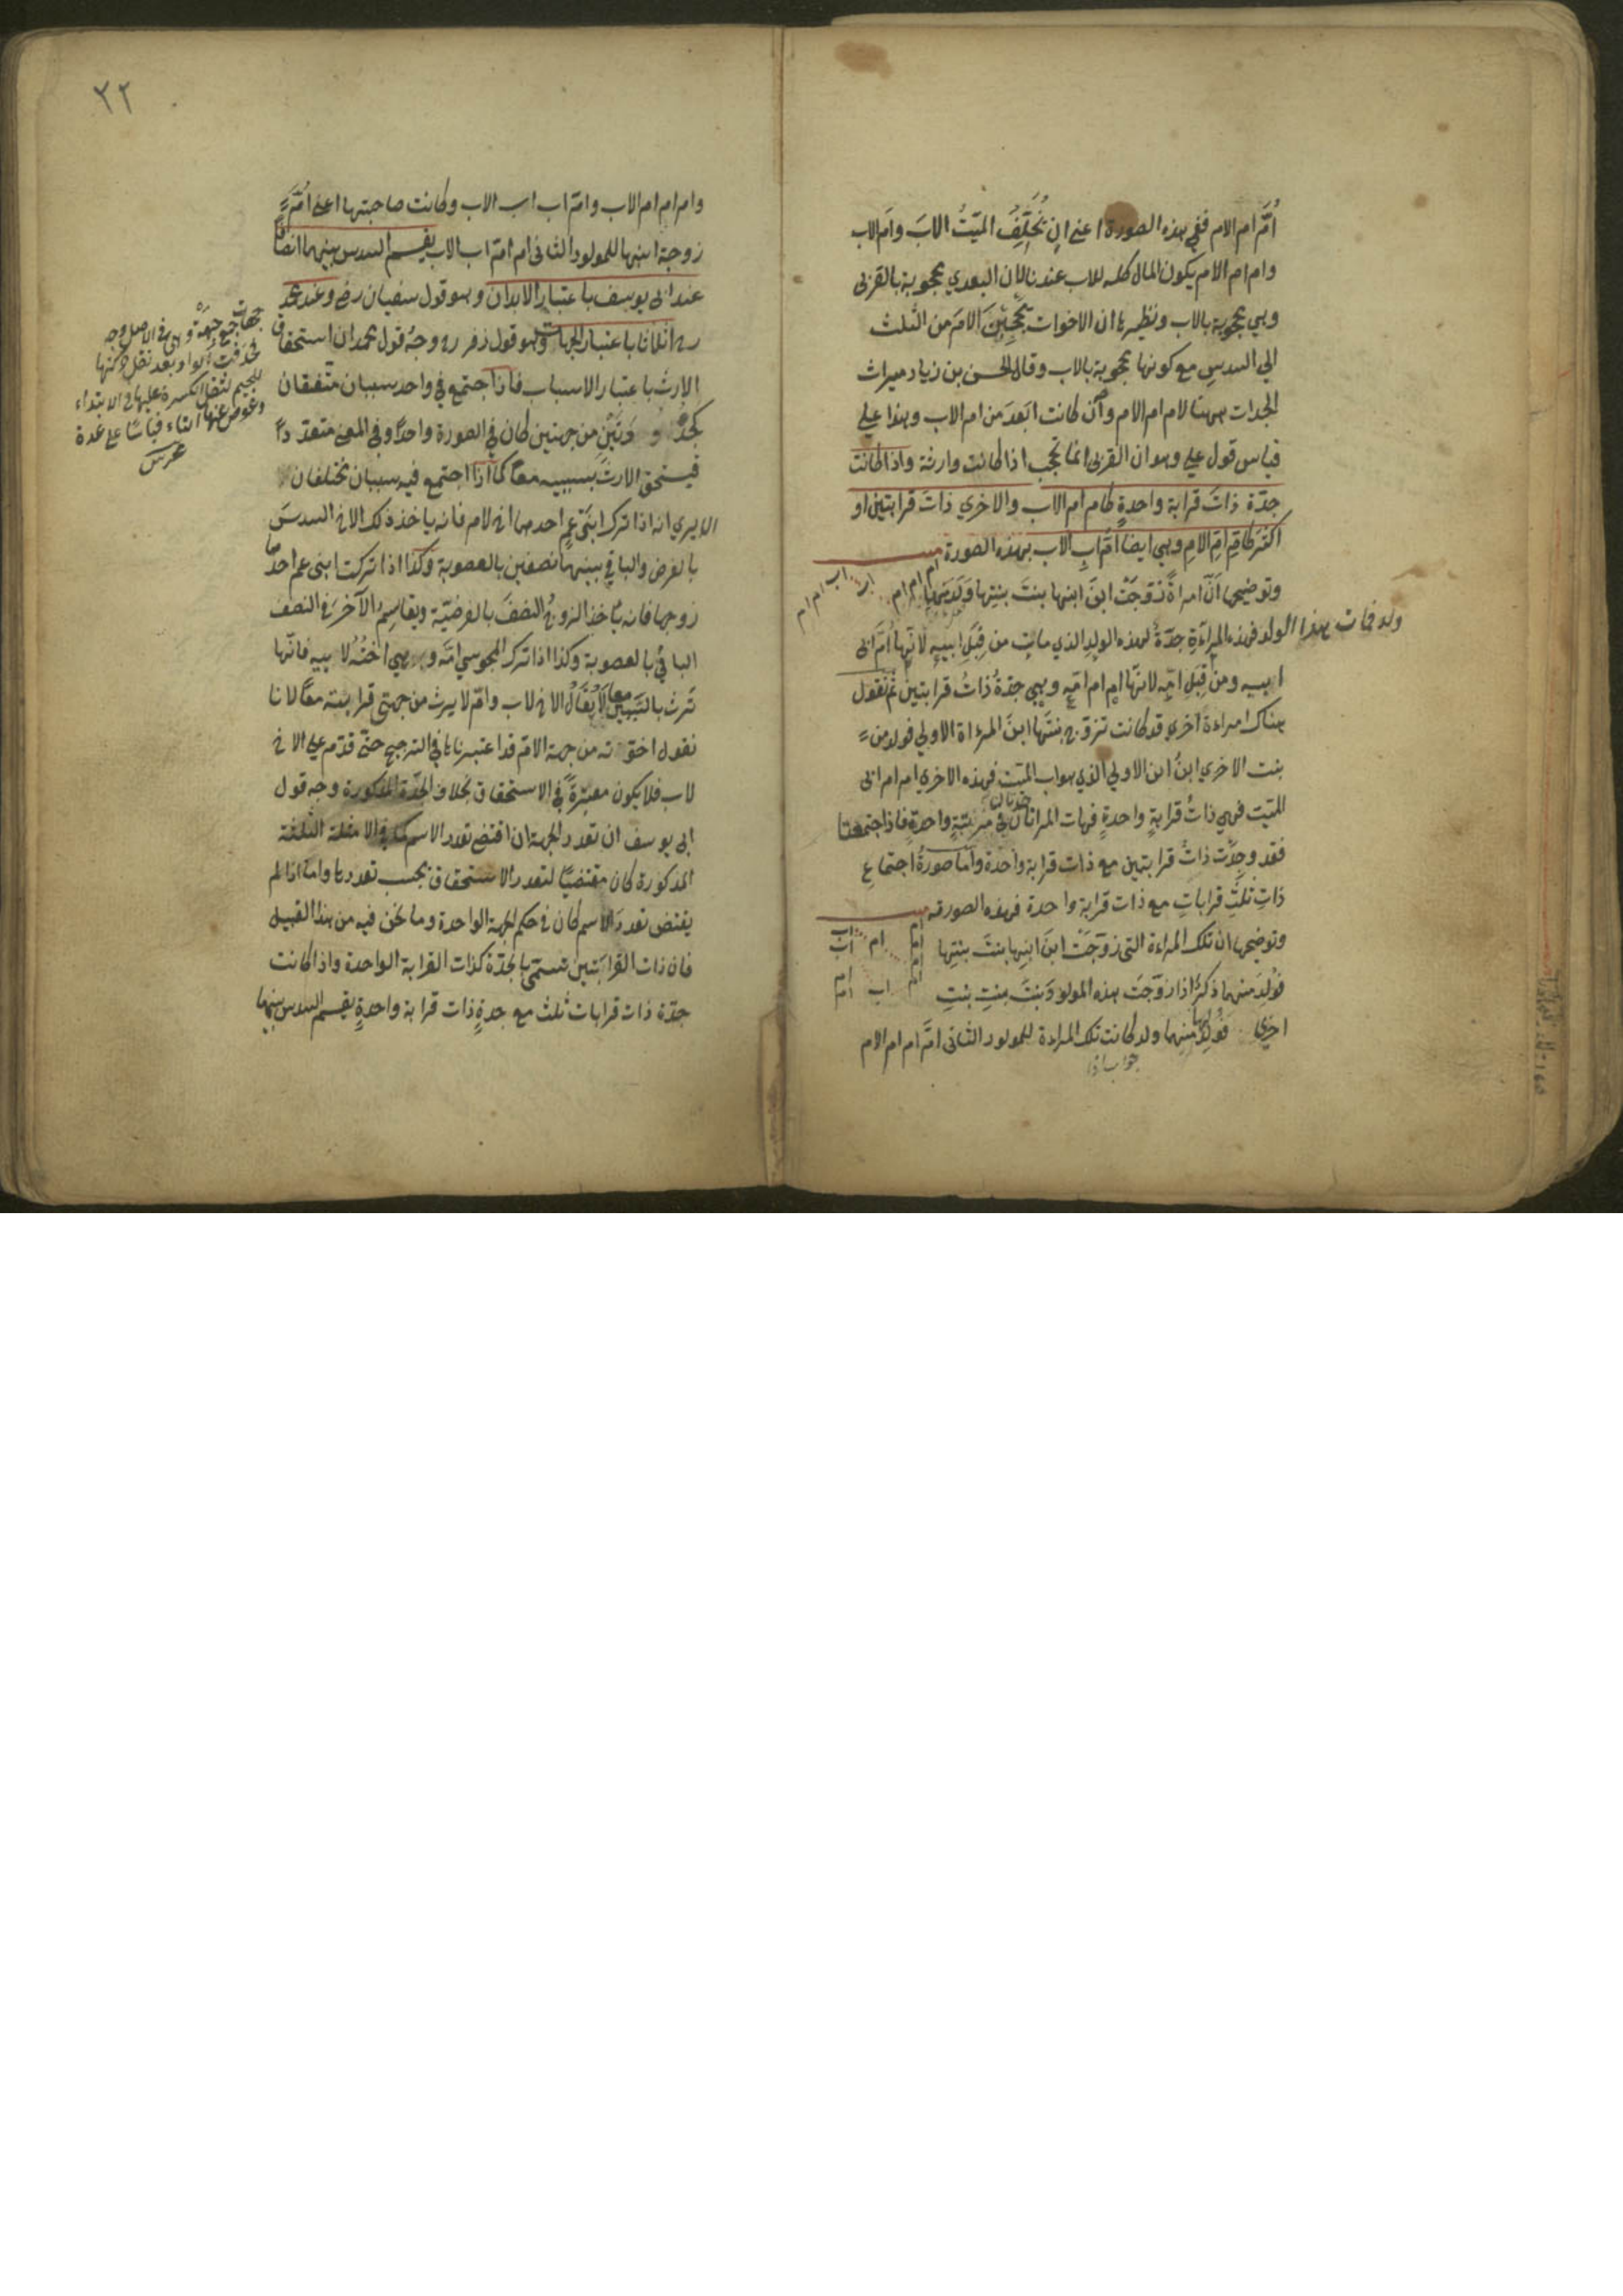 اُمَّ ام الام ففي هذه الصورة اعني ان يُخَلِّفُ الميّتُ الابَ وام الاب
وام ام الام يكون المال كله للاب عندنا لان البعدي محجوبة بالقربى
وهي محجوبة بالاب ونظيرها ان الاخوات يَحْجُبْنَ الامَ من الثلث
الي السدس مع كونها محجوبة بالاب وقال الحسن بن زياد ميراث
الجدات ههنا لام ام الام وان كانت ابعدَ من ام الاب وهذا علي
قياس قول علي وهو ان القربى انما تحجب اذا كانت وارثة واذا كانت
جدّة ذاتَ قرابة واحدةٍ كام ام الاب والاخري ذاتَ قرابتين او
اكثر كام امّ الامِ وهي ايضا امّ ابِ الاب بهذه الصورة
وتوضيحها انّ امراةً زَوّجَتْ ابنَ ابنها بنتَ بنتِها وَلَدَ بينهما
ولد فمات هذا الولد فهذه المراءةِ جدّةٌ لهذه الولدِ الذي مات من قِبَلِ ابيهِ لانّها اُمّ ابى
ابيه ومن قِبَلِ امّه لانها ام ام امّه وهي جدّةُ ذاتُ قرابتين ثم نقول
هناك امراءة اخري قد كانت تزوّج بنتَها ابنُ المراة الاولي فولد من
بنت الاخري ابنُ ابن الاولي الذي هو اب الميّت فهذه الاخري ام ام ابى
الميّت فهي ذاتُ قرابةٍ واحدةٍ فهات المراتان في مرتبةٍ واحدةٍ فاذا اجتمعتا
فقد وجدت ذاتُ قرابتين مع ذات قرابة واحدة واما صورةُ اجتماعِ
ذاتِ ثلثِ قراباتٍ مع ذات قرابة واحدة فهذه الصورة
وتوضيحها ان تلك المراءة التى زوّجَتْ ابنَ ابنِها بنتَ بنتِها
فوُلِدَ بينهما ذكرٌ اذا زوّجَت هذه المولودَ بنتَ بنتِ بنتِ
اخري فوُلِدَ بينهما ولد كانت تلك المراءة للمولود الثانى امّ ام ام الام
جواب اذا
٣٢
وام ام ام الاب وامّ اب اب الاب وكانت صاحبتها اعني امّ
زوجة ابنها للمولود الثانى ام امّ اب الاب يقسم السدس بينهما انصافًا
عند ابى يوسف باعتبار الابدان وهو قول سفيان رض وعند محمد
ره اثلاثا باعتبار الجهات وهو قول زفر ره وجهُ قول محمد ان استحقاق
الارث باعتبار الاسباب فاذا اجتمع في واحد سببان متّفقان
كجدّ من جهتين كان في الصورة واحدًا وفي المعنى متعدّدًا
فيستحق الارثَ بسببيه معًا كما اذا اجتمع فيه سببان مختلفان
الا يري انه اذا ترك ابنَي عمٍ احدهما اخ لام فانه ياخذ ذلك الاخ السدسَ
بالفرض والباقي بينهما نصفين بالعصوبة وكذا اذا تركت ابنى عم احدهما
زوجها فانه ياخذ الزوجُ النصفَ بالفرضيّة ويقاسِمُ الآخرَ في النصف
الباقي بالعصوبة وكذا اذا ترك المجوسي امّه وهي اختُه لابيه فانّها
تَرث بالسَّببين معا لا يُقَالُ الاخ لاب وامّ لا يرث من جهتى قرابته معًا لانا
نقول اخوّته من جهة الامّ قد اعتبرناها في الترجيح حتّى قدّم علي الاخ
لاب فلا يكون معتبرةً في الاستحقاق بخلاف الجدّة المذكورة وجه قول
ابى يوسف ان تعدد الجهة ان اقتضى تعدد الاسم كما في الامثلة الثلثة
المذكورة كان مقتضيًا لتعدد الاستحقاق بحسب تعددها واما اذا لم
يقتض تعددَ الاسم كان في حكم الجهة الواحدة وما نحن فيه من هذا القبيل
فان ذات القرابتين تسمّى بالجدّة كذات القرابة الواحدة واذا كانت
جدّة ذات قرابات ثلث مع جدةٍ ذات قرابة واحدةٍ يقسم السدس بينهما
جهات جمع جهة وهي في الاصل وجه
فحذفت الواو بعد نقل حركتها
للجيم لثقل الكسرة عليها في الابتداء
وعوض عنها التاء قياسًا على عدة